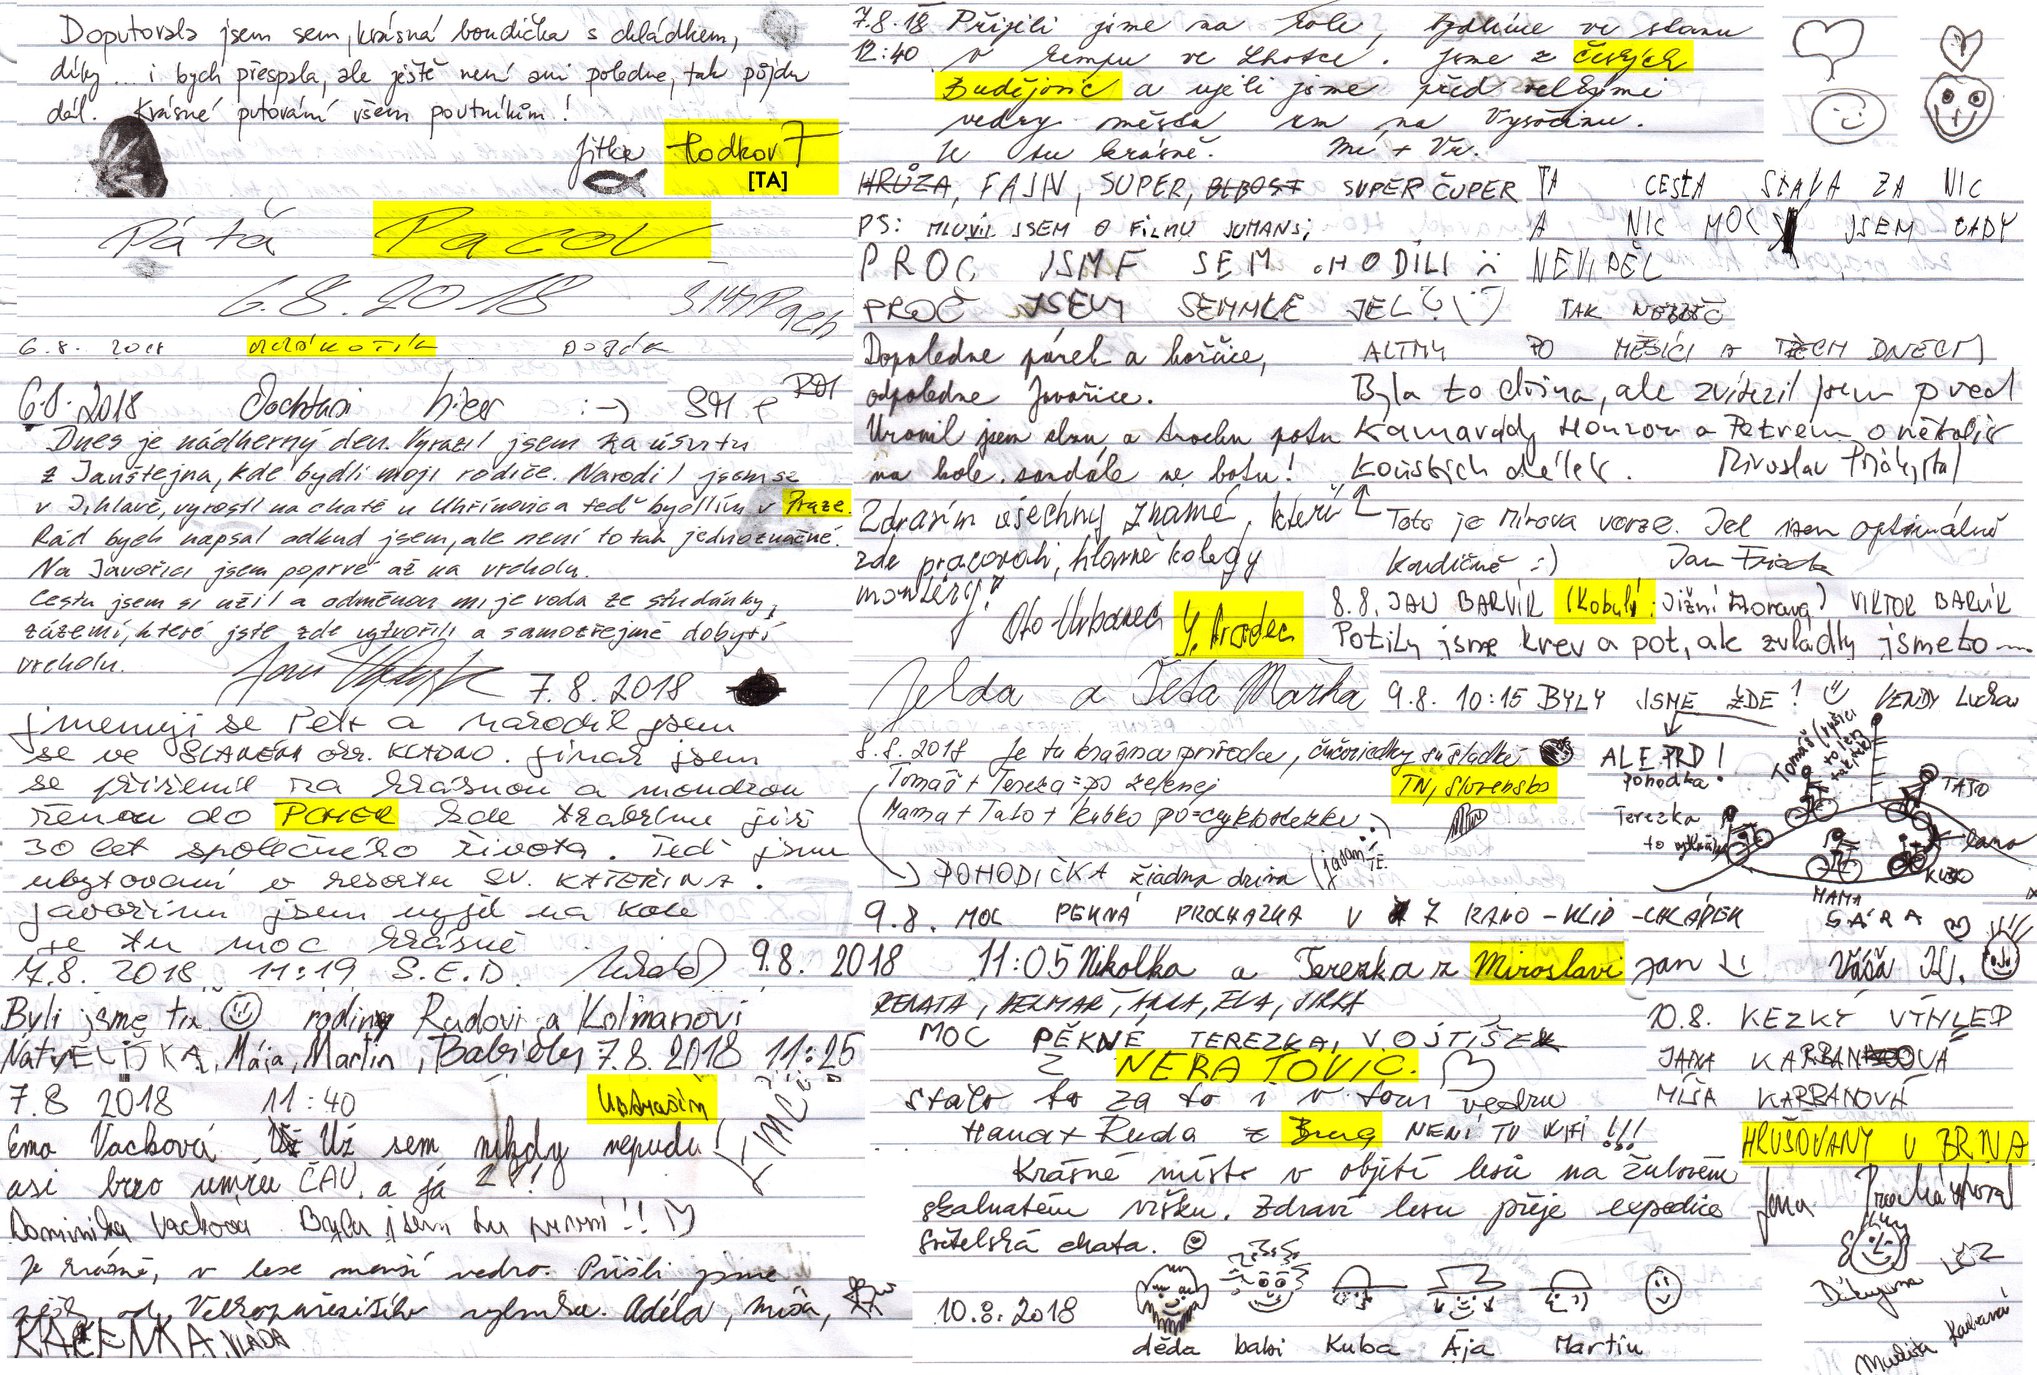 Doputovala jsem sem, krásná boudička s chládkem,
díky... i bych přespala, ale ještě není ani poledne, tak půjdu
dál. Krásné putování všem poutníkům!
Jitka Hodkov
[TA]
Pátá Pacov
6.8.2018
6.8. 2018
6.8.2018 :-)
Dnes je nádherný den. Vyrazil jsem za úsvitu
z Janštejna, kde bydlí moji rodiče. Narodil jsem se
v Jihlavě, vyrostl na chatě u Uhřínovic a teď bydlím v Praze.
Rád bych napsal odkud jsem, ale není to tak jednoznačné.
Na Javořici jsem poprvé až na vrcholu.
Cestu jsem si užil a odměnou mi je voda ze studánky,
zázemí, které jste zde vytvořili a samozřejmě dobytí
vrcholu.
7.8.2018
jmenuji se Petr a narodil jsem
se ve SLANÉM okr. KLADNO. jinak jsem
se přiženil za krásnou a moudrou
ženou do
30 let společného života. Teď jsme
ubytovaní v resortu SV. KATEŘINA.
Javořinu jsem vyjel na kole
je tu moc krásně
7.8. 2018 11:19 S.E.D.
Byli jsme tu rodiny Radovi a Kolmanovi
Naty, ELIŠKA, Mája, Martin, Babičky 7.8.2018 11:25
7.8 2018 11:40
Ema Vacková Už sem nikdy nepudu!
asi brzo umřu ČAU a já
Dominika Vacková Byla jsem tu první!!
Je krásně, v lese menší vedro. Přišli jsme
pěšky od Velkopařezitého rybníku. Adéla, Míša,
KAČENKA, VLÁĎA
7.8.18 Přijeli jsme na kole, bydlíme ve stanu
12:40 v kempu ve Lhotce. Jsme z Českých
Budějovic a ujeli jsme před velkými
vedry města sem na Vysočinu.
Je tu krásně. Mí + Vr.
HRŮZA, FAJN, SUPER, BLBOST SUPER ČUPER
PS: MLUVIL JSEM O FILMU JUMANJI
PROČ JSME SEM CHODILI
PROČ JSEM SEMHLE JEL?
TA CESTA STÁLA ZA NIC
A NIC MOC JSEM TADY
NEVIDĚL
TAK
ALTMY PO MĚSÍCI A TŘECH DNECH
Dopoledne párek a hořčice,
odpoledne Javořice.
Uronil jsem slzu a trochu potu
na kole, sandále ne botu!
Byla to dřina, ale zvítězil jsem pred
Kamarády Honzou a Petrem o několik
kouskich délek. Miroslav
Zdravím všechny známé, kteří
zde pracovali, hlavně kolegy
montéry!
Oto Urbanec J. Hradec
Toto je Mirova verze. Jel jsem optimálně
kondičně :)
8.8. JAN BARVÍK (Kobylí, Jižní Morava) VIKTOR BARVÍK
Potily jsme krev a pot, ale zvládly jsme to
Jelda a Teta Mařka
9.8. 10:15 BYLY JSME ZDE! VENDY Lucka
ALE PRD!
Pohodka!
8.8.2018 Je tu krásna príroda, čučoriedky sú sladké
Tomáš + Tereza = po zelenej TN, Slovensko
Mama + Tato + Kubko po = cyklostezke
POHODIČKA žiadna drina (jasan TE.
Terezka
TATO
MAMA
9.8. MOC PĚKNÁ PROCHAZKA V Z KAHO-KLID-CHLÁPEK
SÁRA
9.8. 2018 11:05 Nikolka a Terezka z Miroslavi Jan Váša
RENATA, HELMAŘ, JANA, EVA, JIRKA
MOC PĚKNÉ TEREZKA, VOJTÍŠEK
Z NERATOVIC.
stálo to za to i v tom vedru
Hana + Ruda z Brna NENÍ TU WIFI!!!
10.8. KEZKÝ VÝHLED
JANA KARBANOVÁ
MÍŠA KARBANOVÁ
HRUŠOVANY U BRNA
Jana
Děkujeme
Markéta Karbanová
Krásné místo v objetí lesů na žulovém
skalnatém vršku. Zdraví lesu přeje expedice
Světelská chata.
10.8.2018
děda babi Kuba Ája Martin